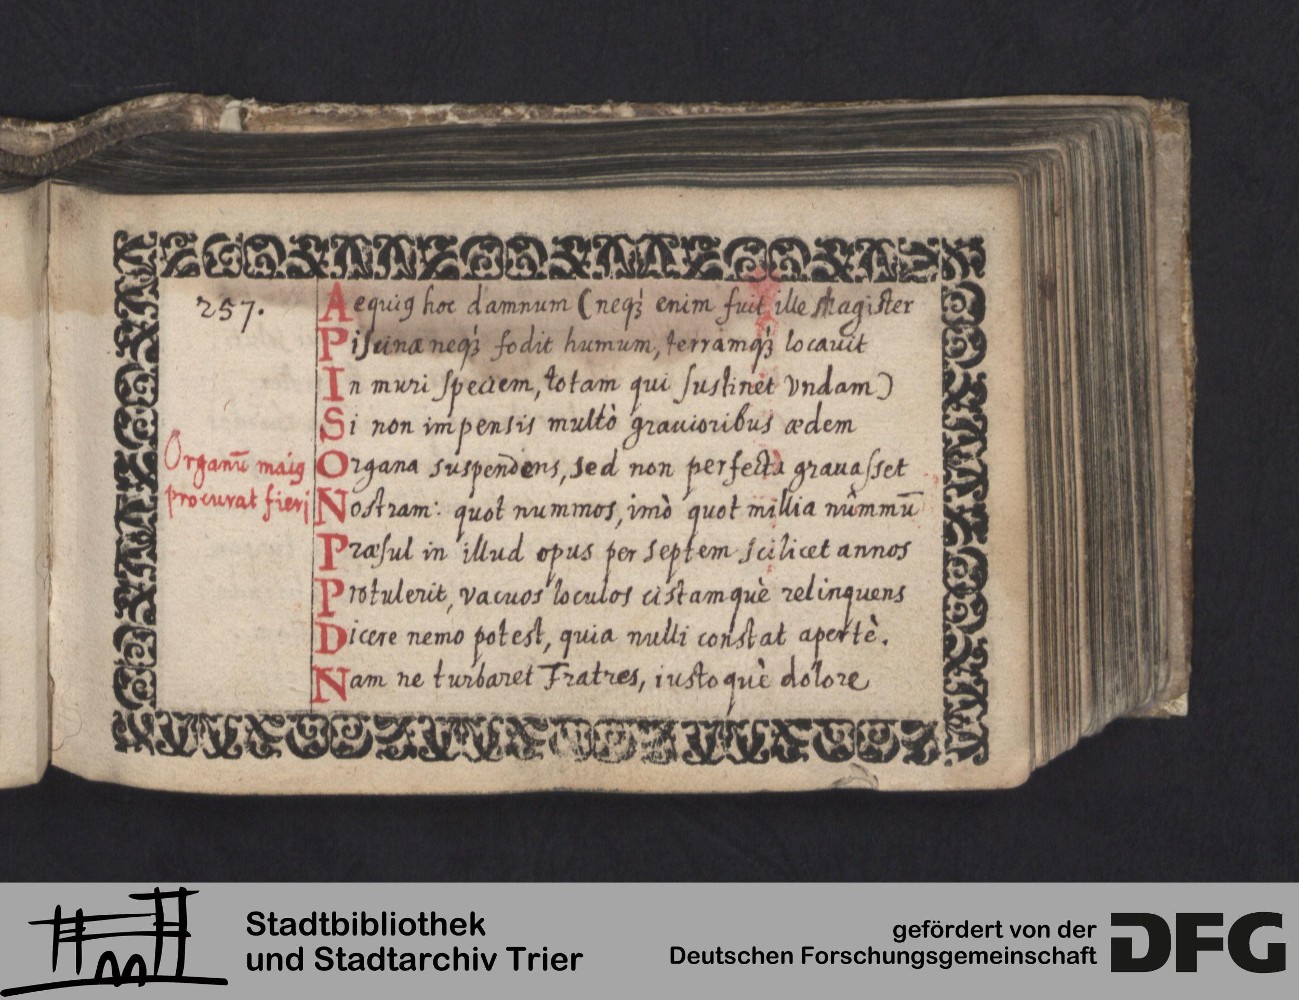 257.
Aequiꝰ hoc damnum (neqꝫ enim fuit ille Magister
Piscinæ neqꝫ fodit humum, terramqꝫ locauit
In muri speciem, totam qui sustinet vndam)
Si non impensis multò grauioribus ædem
Organū maiꝰ
Organa suspendens, sed non perfecta grauasset
procurat fieri
Nostram: quot nummos, imò quot millia nummū
Præsul in illud opus per septem scilicet annos
Protulerit, vacuos loculos cistamquè relinquens
Dicere nemo potest, quia nulli constat apertè.
Nam ne turbaret Fratres, iustoquè dolore
Stadtbibliothek
und Stadtarchiv Trier
gefördert von der
Deutschen Forschungsgemeinschaft
DFG